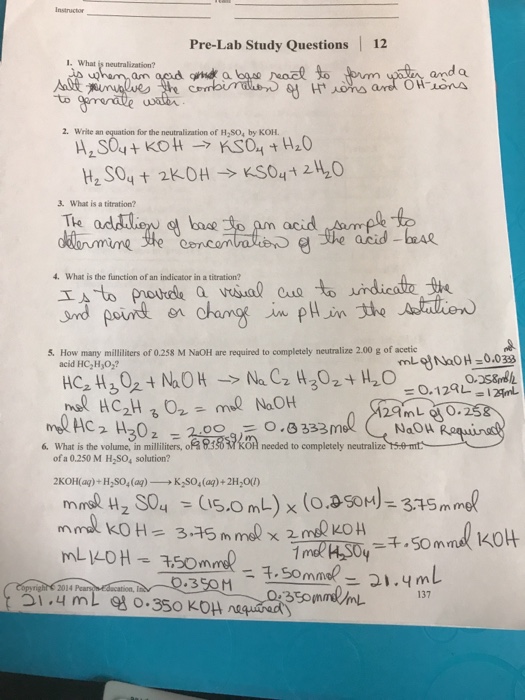 Instructor
Pre-Lab Study Questions | 12
1. What is neutralization?
is when an acid and a base react to form water and a
salt involves the combination of H⁺ ions and OH⁻ ions
to generate water.
2. Write an equation for the neutralization of H₂SO₄ by KOH.
H₂SO₄ + KOH → KSO₄ + H₂O
H₂SO₄ + 2KOH → KSO₄ + 2H₂O
3. What is a titration?
The addition of base to an acid sample to
determine the concentration of the acid-base
4. What is the function of an indicator in a titration?
Is to provide a visual cue to indicate the
end point or change in pH in the solution
5. How many milliliters of 0.258 M NaOH are required to completely neutralize 2.00 g of acetic
acid HC₂H₃O₂?
mL of NaOH = 0.0333
0.258 mol/L
HC₂H₃O₂ + NaOH → NaC₂H₃O₂ + H₂O
= 0.129L = 129mL
mol HC₂H₃O₂ = mol NaOH
(129mL of 0.258
NaOH Required)
mol HC₂H₃O₂ = 2.00 = 0.0333mol
6. What is the volume, in milliliters, of 0.350 M KOH needed to completely neutralize 15.0 mL
of a 0.250 M H₂SO₄ solution?
2KOH(aq) + H₂SO₄(aq) ⟶ K₂SO₄(aq) + 2H₂O(l)
mmol H₂SO₄ = (15.0 mL) x (0.250M) = 3.75 mmol
mmol KOH = 3.75 mmol x 2 mol KOH
1 mol H₂SO₄ = 7.50 mmol KOH
mL KOH = 7.50 mmol
0.350M = 7.50 mmol
0.350 mmol/mL = 21.4 mL
Copyright © 2014 Pearson Education, Inc.
137
(21.4 mL of 0.350 KOH required)